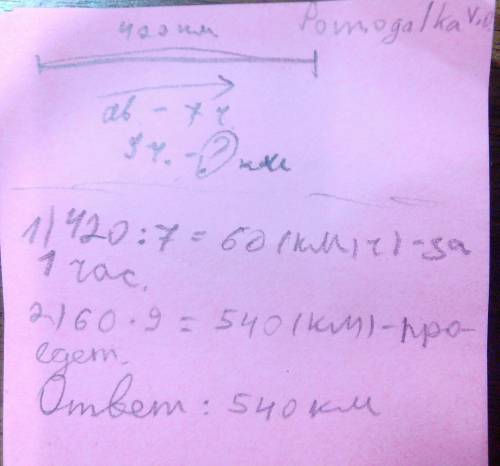 Pomogalka V.U
420 км
ав - 7 ч
9 ч. - ? км
1) 420 : 7 = 60 (км/ч) - за
1 час.
2) 60 · 9 = 540 (км) - про-
едет.
Ответ : 540 км